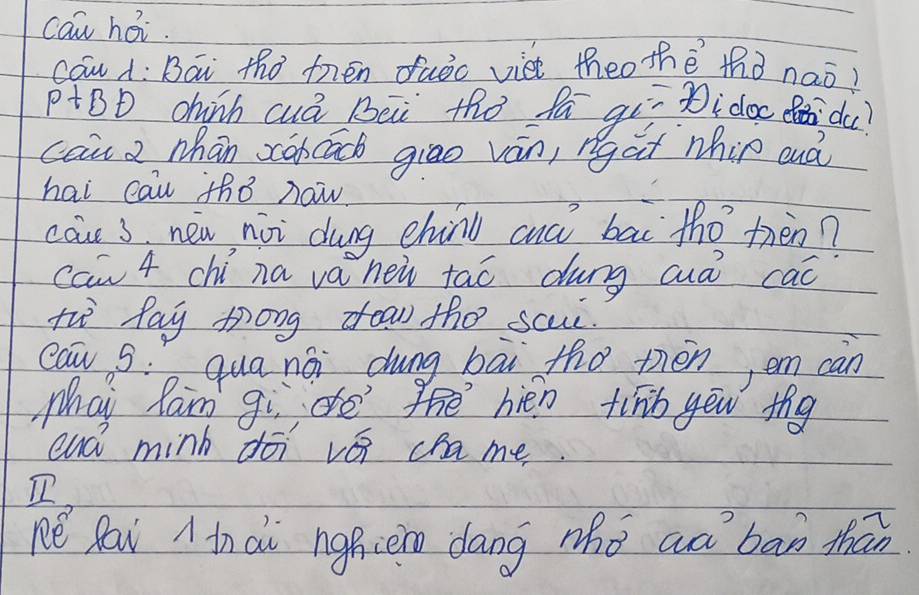 câu hỏi.
câu 1: Bài thơ trên được viết theo thể thơ nào?
PTBĐ chính của Bài thơ là gì?
câu 2 nhận xét cách gieo vần, ngắt nhịp của
hai câu thơ sau.
câu 3. nêu nội dung chính của bài thơ trên?
câu 4 chỉ ra và nêu tác dụng của các
từ láy trong đoạn thơ sau.
câu 5: qua nội dung bài thơ trên, em cần
phải làm gì, để thể hiện tình yêu thg
của mình đối với cha mẹ.
II
Kể lại 1 trải nghiệm đáng nhớ của bản thân.